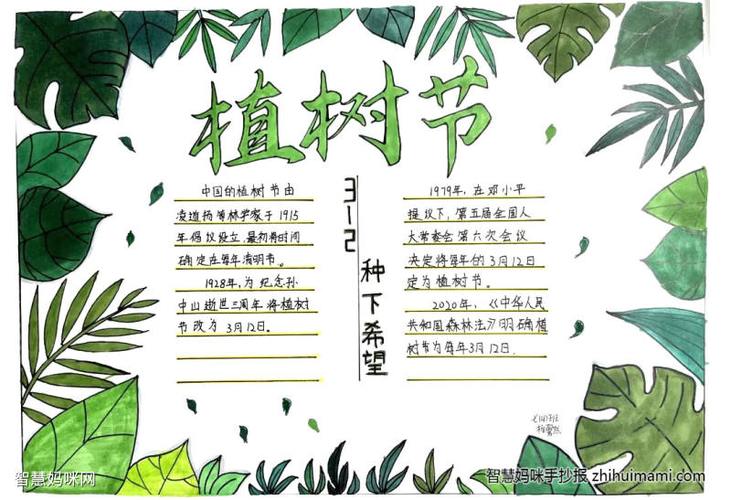 植树节
中国的植树节由
凌道扬等林学家于1915
年倡议设立,最初将时间
确定在每年清明节。
1928年,为纪念孙
中山逝世三周年,将植树
节改为3月12日。
3-12
种下希望
1979年,在邓小平
提议下,第五届全国人
大常委会第六次会议
决定将每年的3月12日
定为植树节。
2020年,《中华人民
共和国森林法》明确植
树节为每年3月12日.
智慧妈咪网
智慧妈咪手抄报 zhihuimami.com